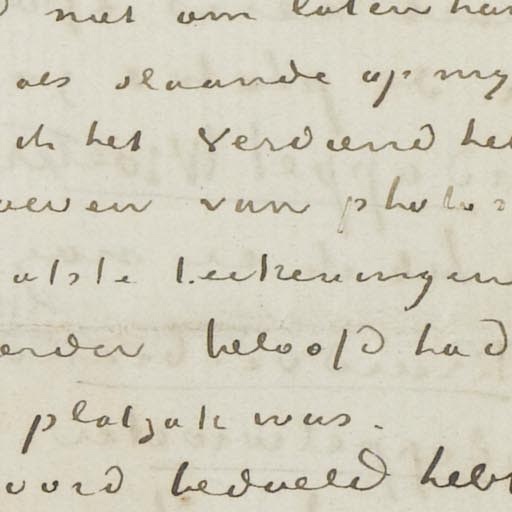 niet om laten
als staande op my
ik het verdiend heb
van photo
laatste teekeningen
beloofd had
platzak was.
woord bedoeld hebt